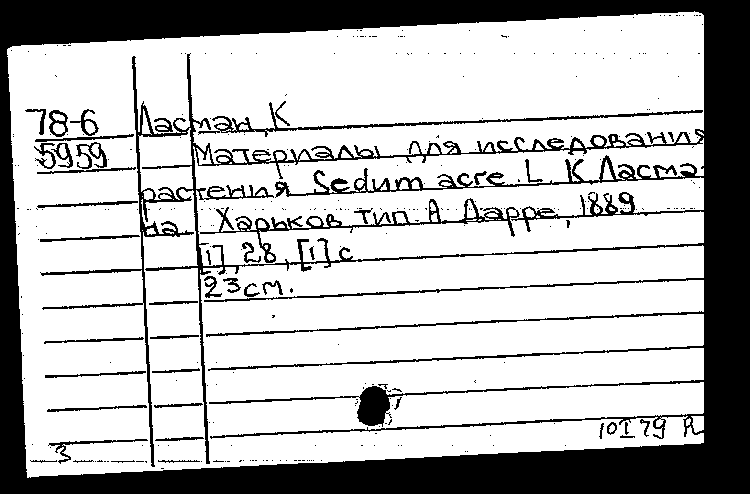 78-6 Ласман, К
5959 Материалы для исследования
растения Sedum acre L К Ласма-
на Харьков, тип А Дарре, 1889
[1], 28, [1] с
23 см.
10 I 79 R
3